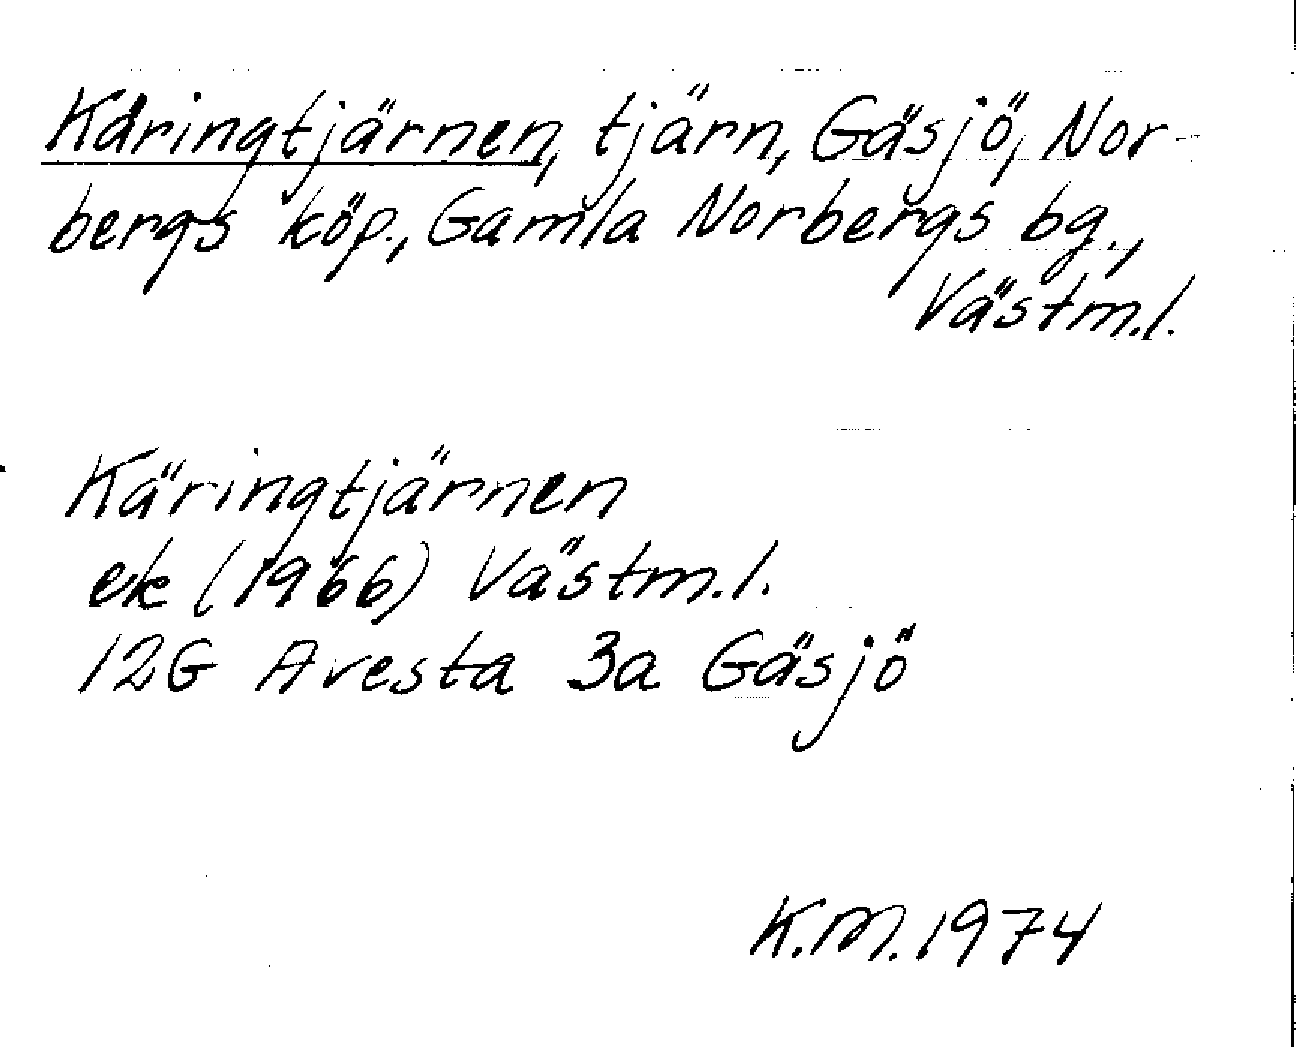 Käringtjärnen, tjärn, Gäsjö, Nor-
bergs köp., Gamla Norbergs bg.,
Västm.l.
Käringtjärnen
ek (1966) Västm.l.
12G Avesta 3a Gäsjö
K.M. 1974